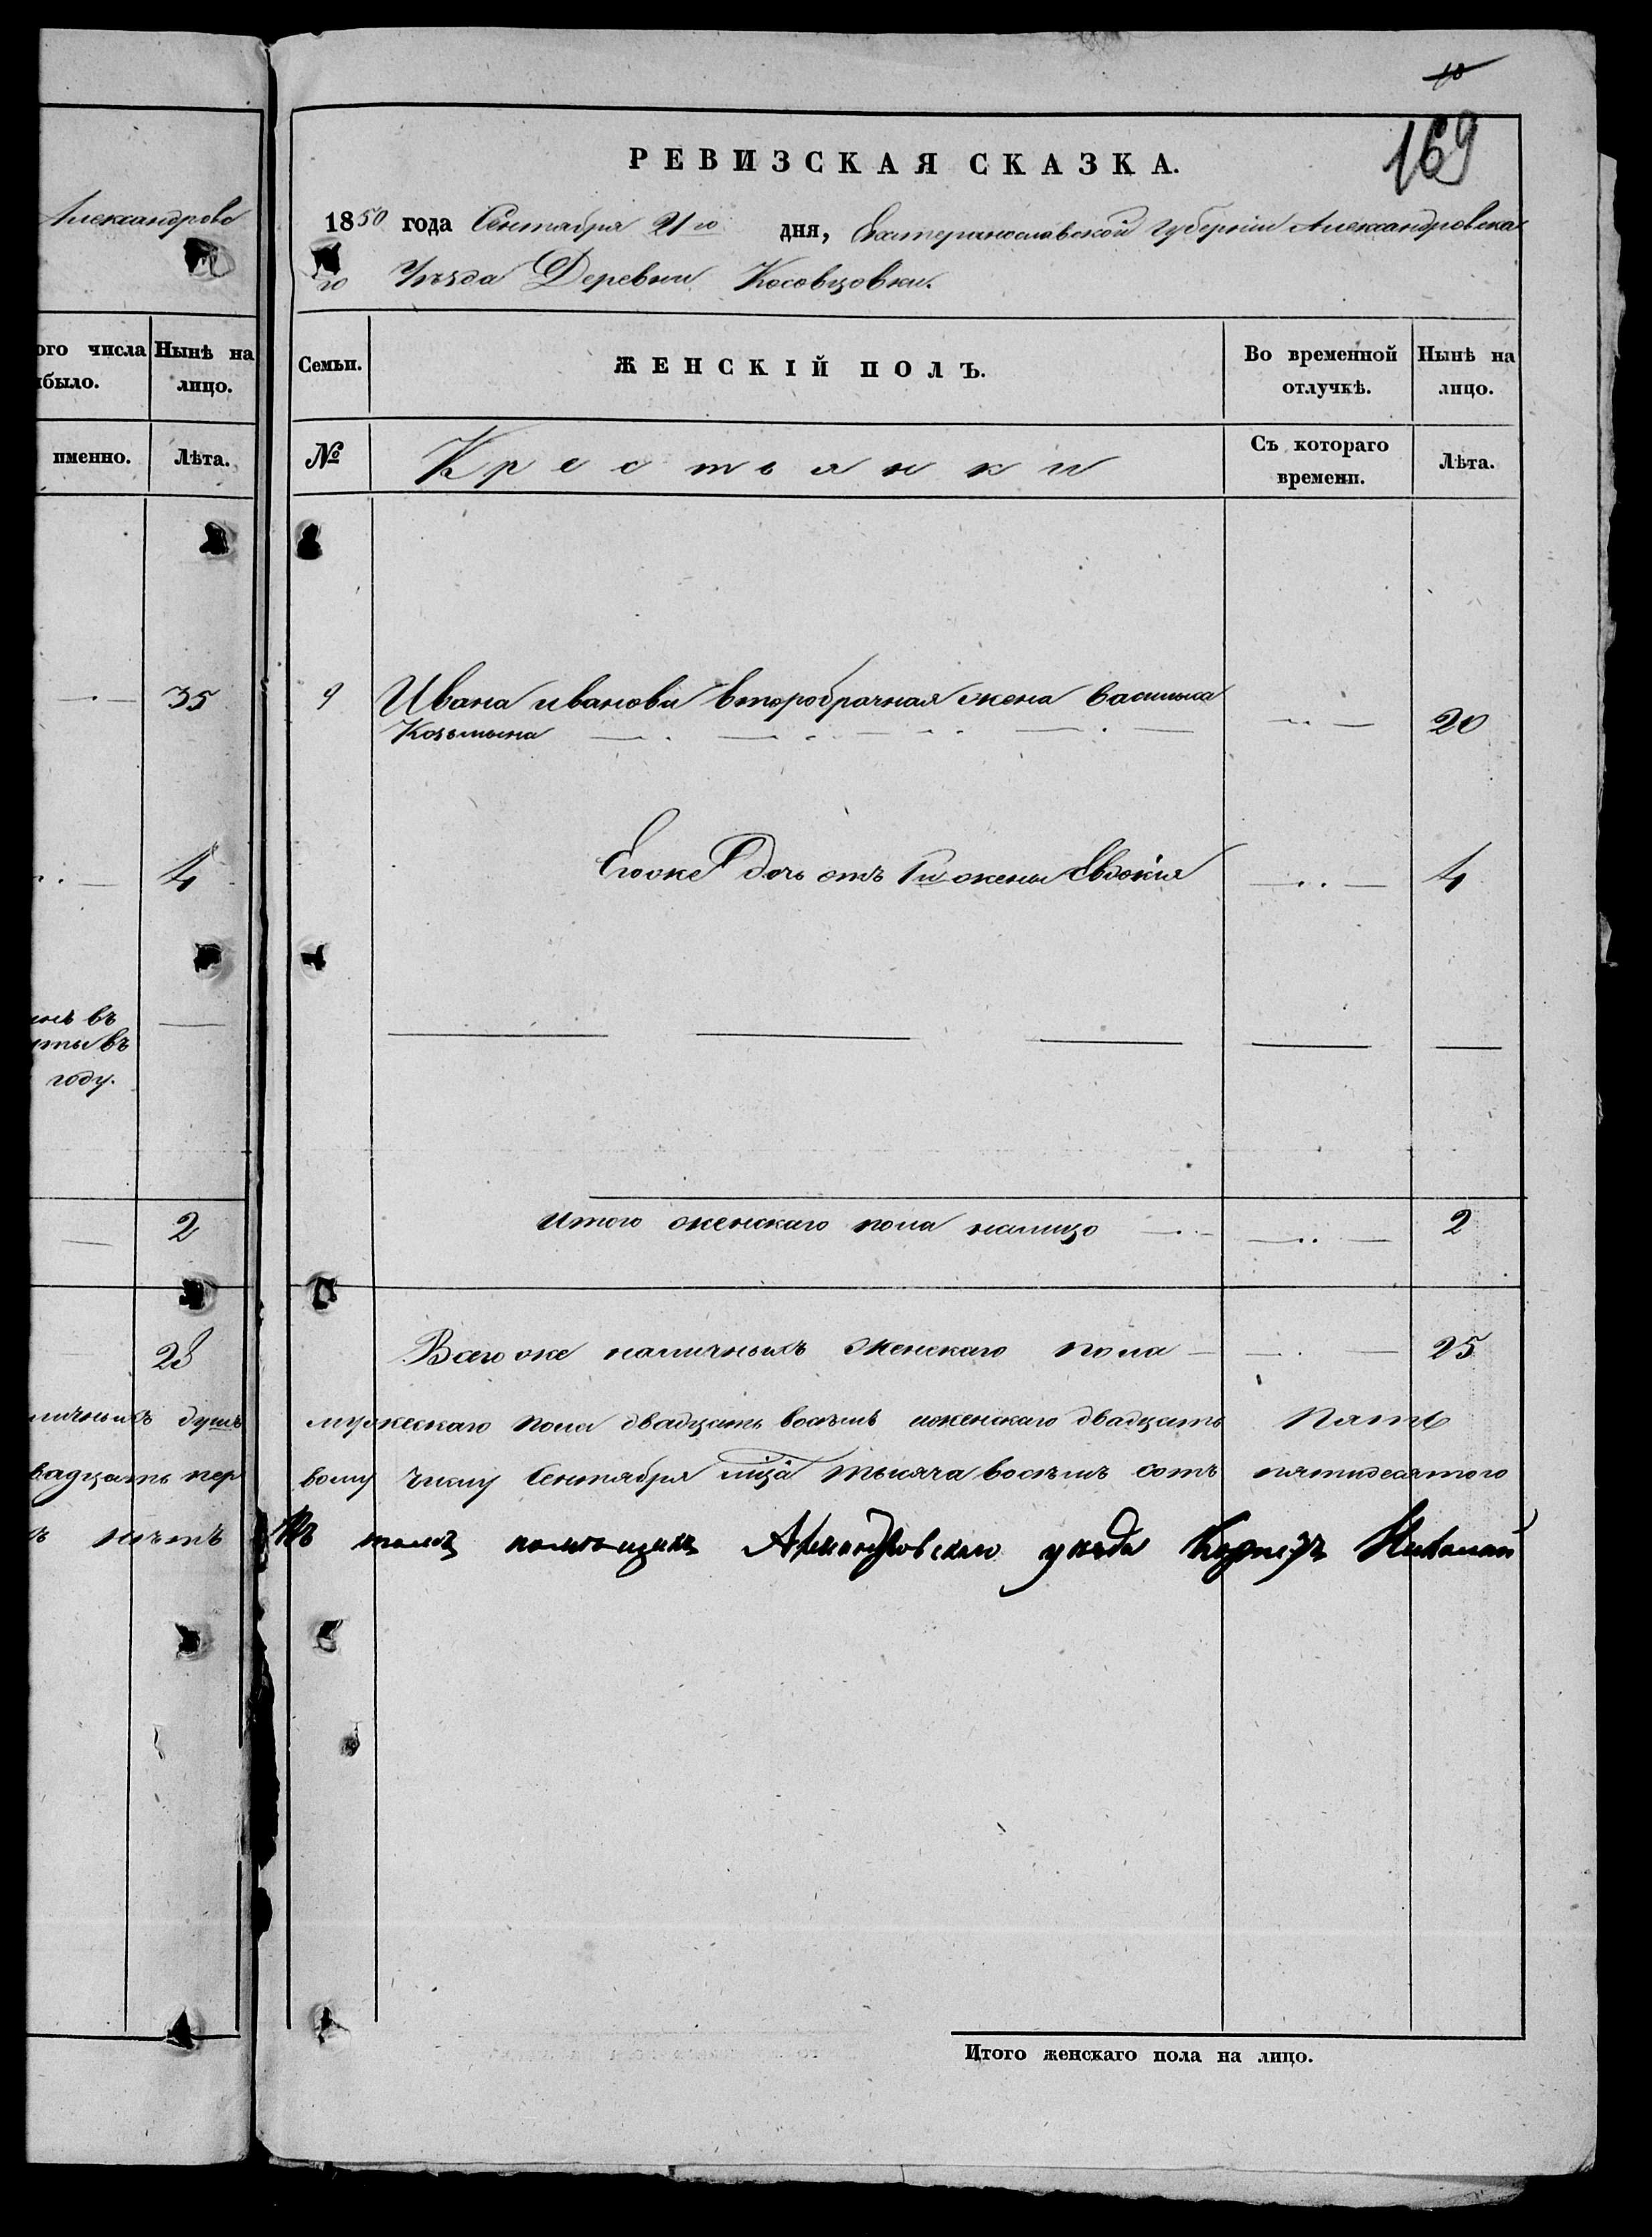 Александровс
ого числа
Нынѣ на
было.
лицо.
именно.
Лѣта.
35
4
въ
году.
2
28
личныхъ душъ
вадцать пер
нѣтъ
18
169
РЕВИЗСКАЯ СКАЗКА.
1850 года Сентября 21го дня, Екатеринославской Губерніи Александровска
го Уѣзда Деревни Косовцовки.
Семьи.
ЖЕНСКІЙ ПОЛЪ.
Во временной
отлучкѣ.
Нынѣ на
лицо.
№
Крестьянки
Съ котораго
времени.
Лѣта.
9 Ивана иванова второбрачная жена Василиса
Козьмина 20
Егоже дочь отъ 1й жены Евдокія 4
Итого женскаго пола налицо 2
Всего же наличныхъ женскаго пола 25
мужескаго пола двадцать восемь иженскаго двадцать пять
вому числу Сентября мца тысяча восемь сотъ пятидесятого
Въ томъ помѣщикъ Александровскаго уезда Корнетъ Николай
Итого женскаго пола на лицо.